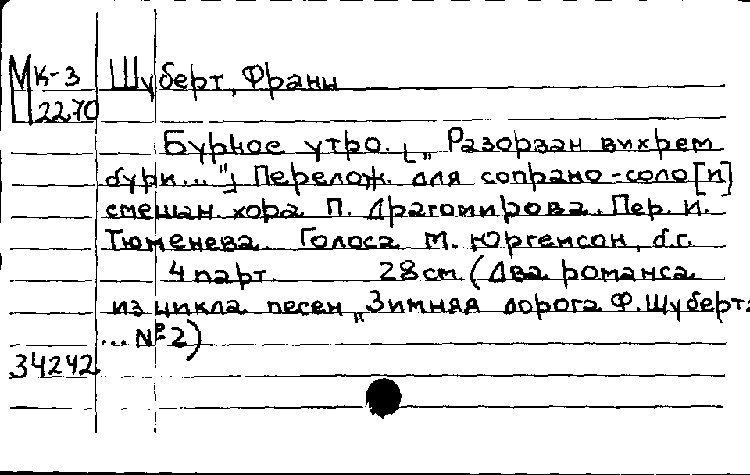 Мк-3 Шуберт, Франц
Ц2270
Бурное утро. [„Разорван вихрем
бури..."] Перелож. для сопрано-соло [и]
смешан. хора П. Драгомирова. Пер. И.
Тюменева. Голоса. М. Юргенсон, б.г.
4 парт. 28см. (Два романса
из цикла песен „Зимняя дорога Ф. Шуберта
... №2)
34242